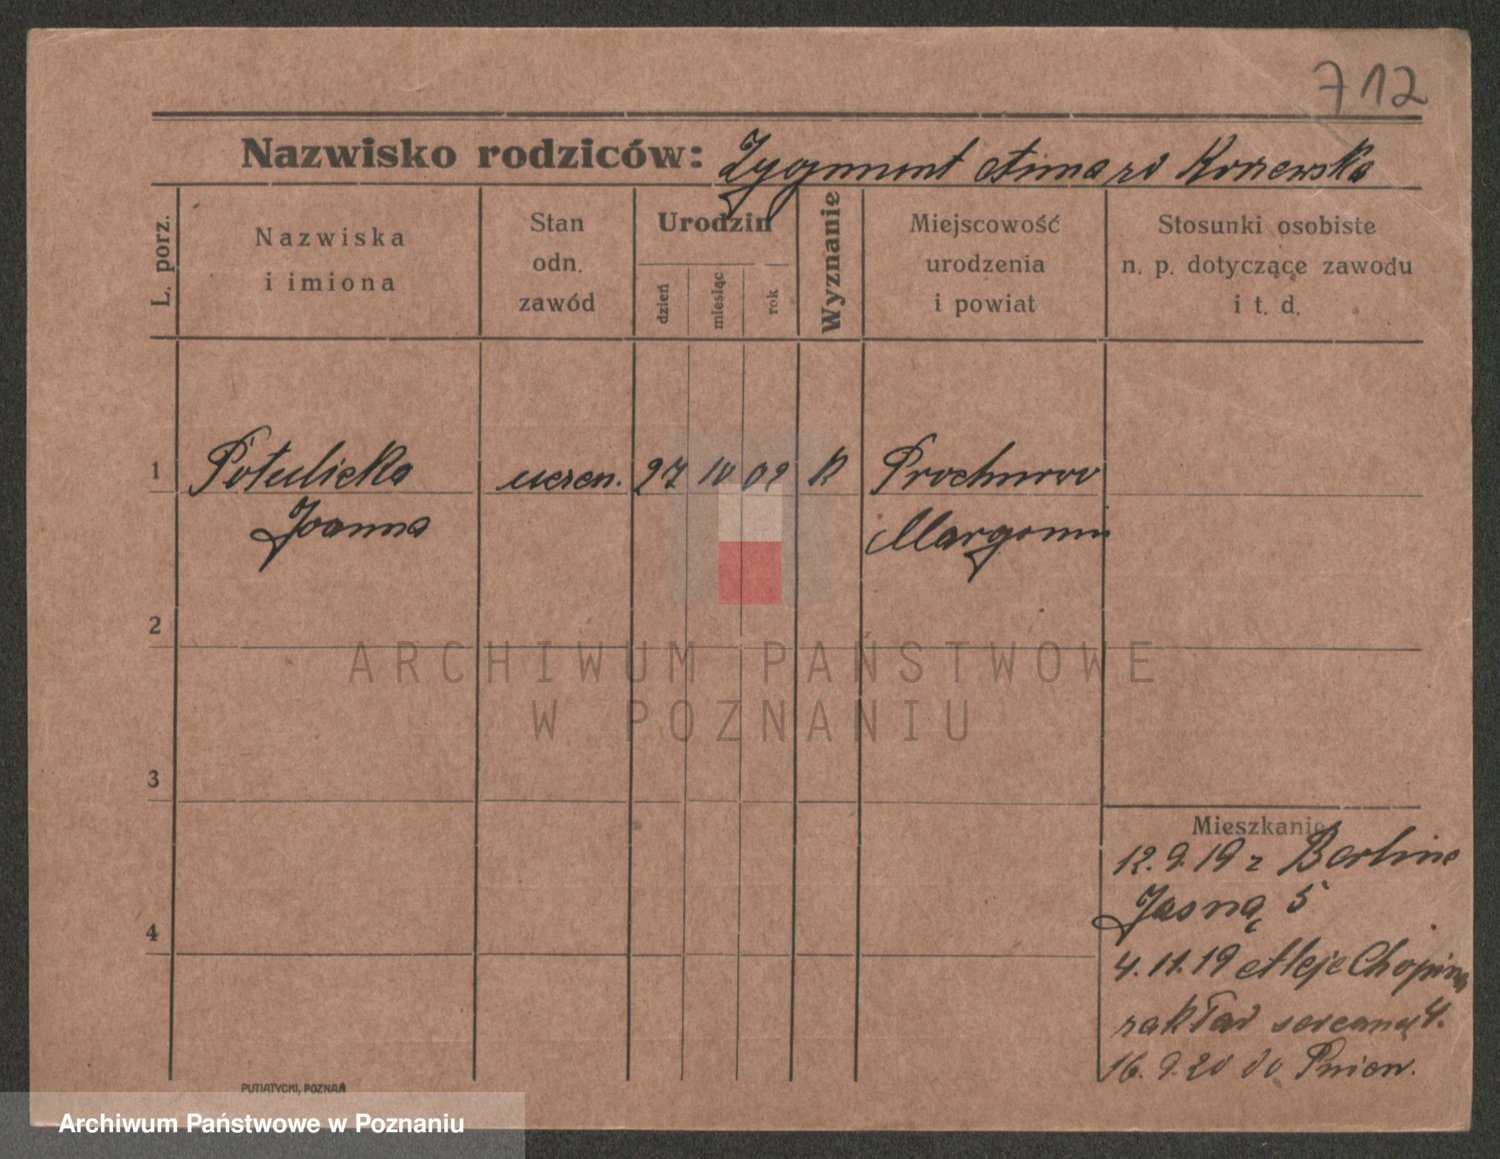 712
Nazwisko rodziców: Zygmunt Anna zd Korzewska
L. porz.
Nazwiska
i imiona
Stan
odn.
zawód
Urodzin
dzień
miesiąc
rok
Wyznanie
Miejscowość
urodzenia
i powiat
Stosunki osobiste
n. p. dotyczące zawodu
i t. d.
1 Potulicka uczen. 27 10 02 k Prochnowo
Joanna Margonin
2
3
4
Mieszkanie
12.9.19 z Berlina
Jasna 5
4.11.19 Aleje Chopina
zakład 4.
16.9.20 do Pniew.
PUTIATYCKI, POZNAŃ
ARCHIWUM PAŃSTWOWE
W POZNANIU
Archiwum Państwowe w Poznaniu